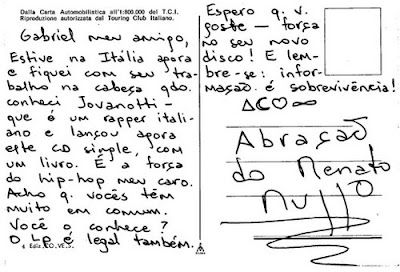 Dalla Carta Automobilistica all'1:800.000 del T.C.I.
Riproduzione autorizzata dal Touring Club Italiano.
Gabriel meu amigo,
Estive na Itália agora
e fiquei com seu tra-
balho na cabeça qdo.
conheci Jovanotti -
que é um rapper itali-
ano e lançou agora
este CD simple, com
um livro. É a força
do hip-hop meu caro.
Acho q. vocês têm
muito em comum.
Você o conhece?
O LP é legal também.
Espero q. v.
goste - força
no seu novo
disco! E lem-
bre-se: infor-
mação é sobrevivência!
Abração
do Renato